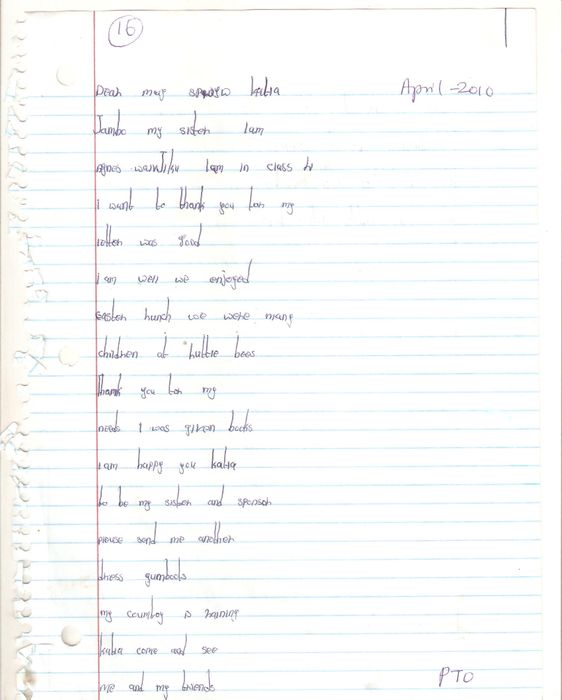 16
Dear my sponsor katia April -2010
Jambo my sister Iam
Agnes wanJiku Iam in class 4
i want to thank you for my
letter was good
i am well we enjoyed
easter lunch we were many
children at huttle bees
thank you for my
needs I was given books
iam happy you katia
to be my sister and sponsor
please send me another
dress gumboots
my country is raining
katia come and see
me and my friends
PTO